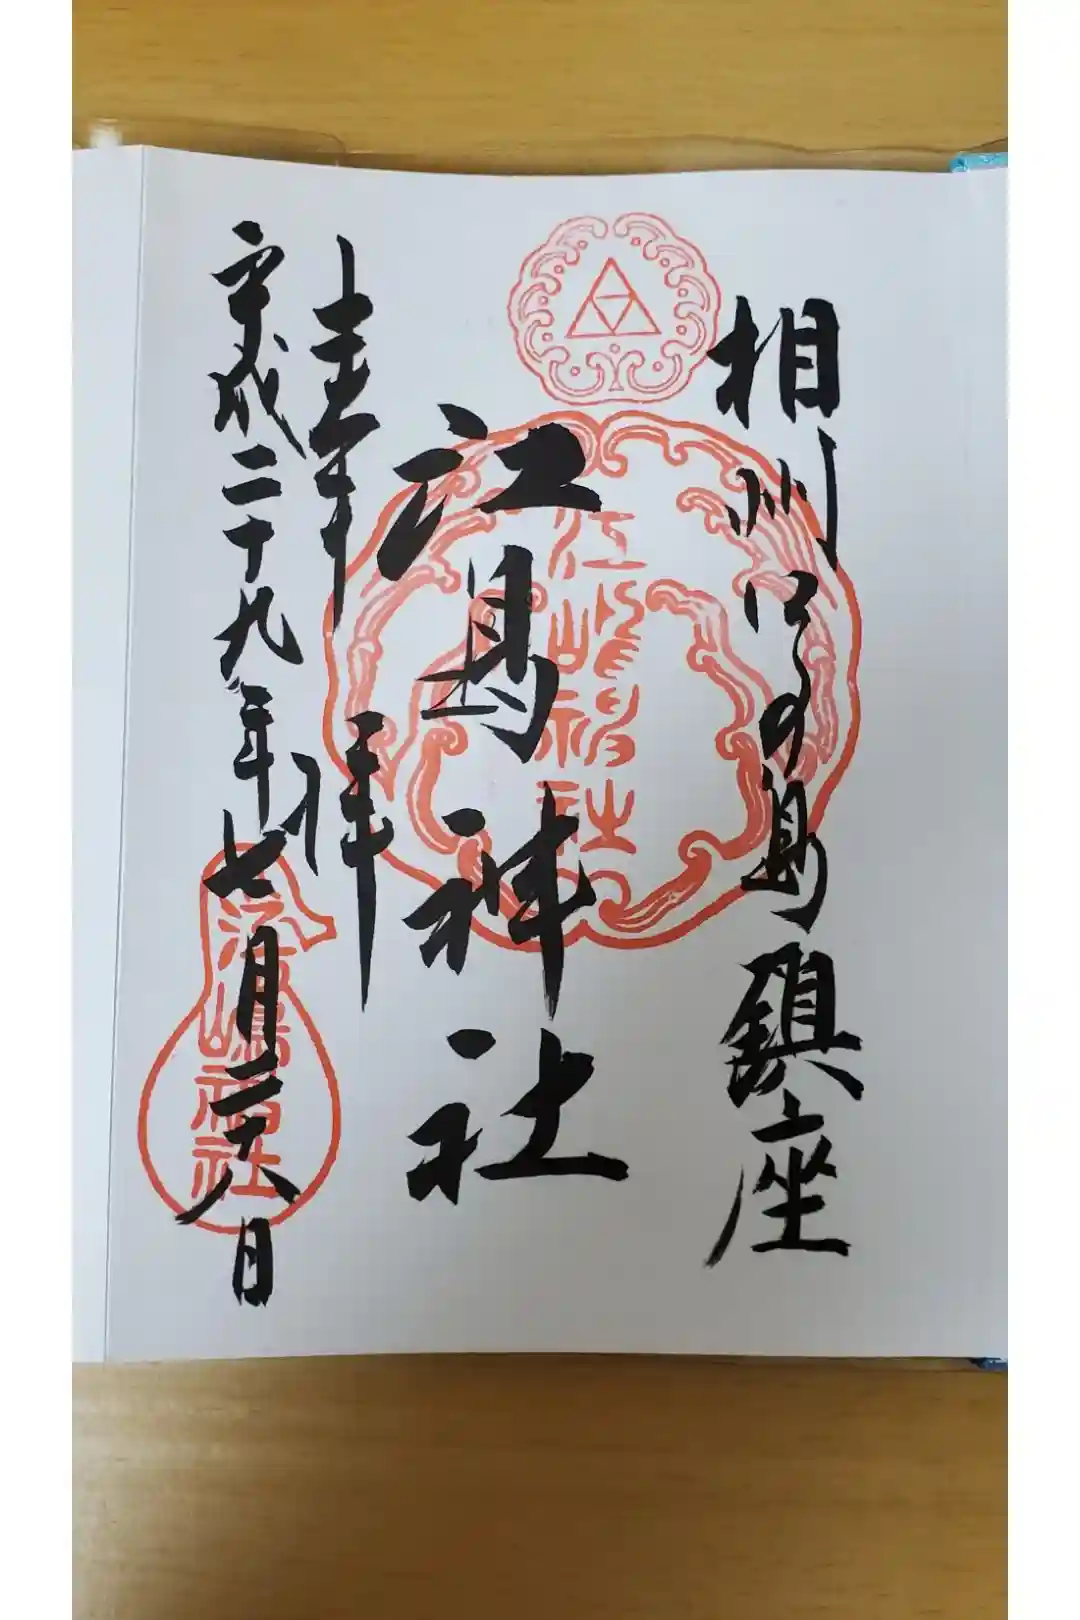 相州江の島鎮座
江島神社
奉拝
平成二十九年七月二十八日
江嶋神社